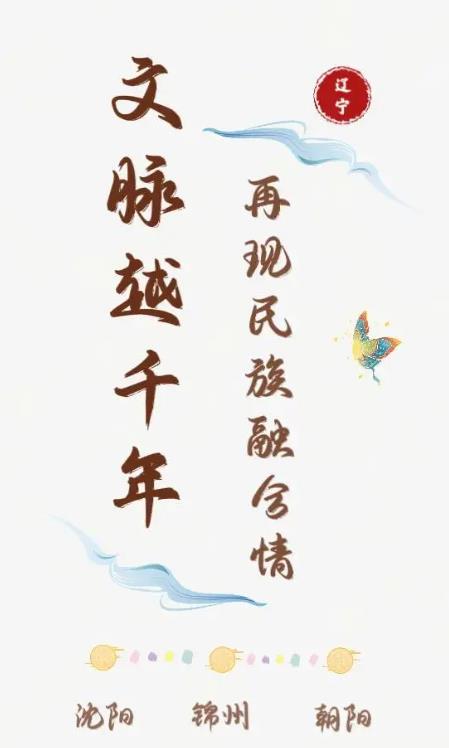 文脉越千年
再现民族融合情
辽宁
沈阳 锦州 朝阳